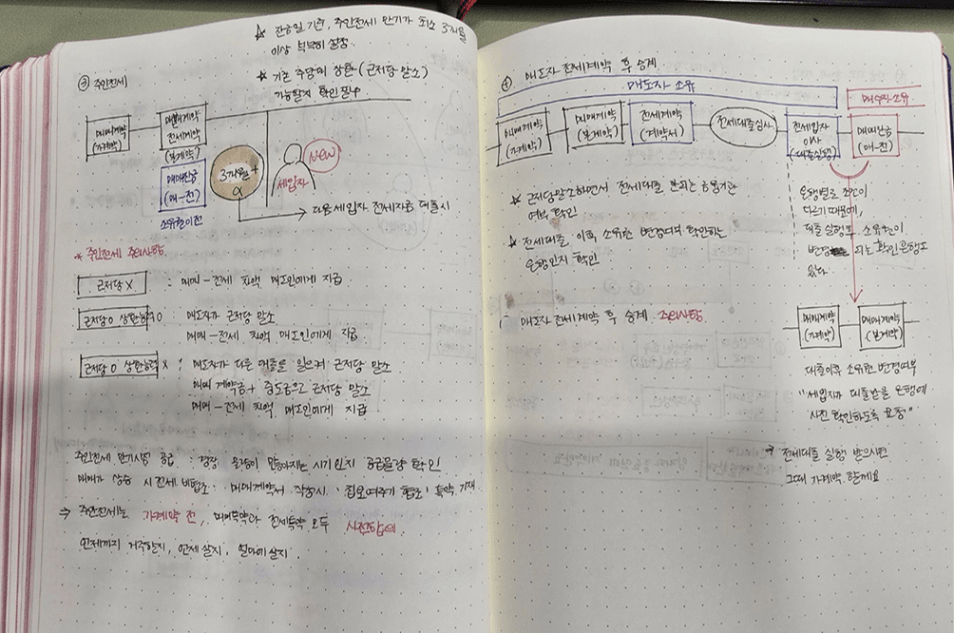 ☆ 잔금일 기준, 주인전세 만기가 최소 3개월
이상 넉넉히 설정
☆ 기존 주담대 상환(근저당 말소)
가능할지 확인 필수
③ 주인전세
매매계약
(가계약)
매매계약
전세계약
(본계약)
매매잔금
(매-전)
소유권이전
3개월 +
α
세입자
NEW
다음 세입자 전세자금 대출 시
* 주인전세 주의사항
근저당 X : 매매-전세 차액 매도인에게 지급
근저당 O 상환능력 O : 매도자가 근저당 말소
매매-전세 차액 매도인에게 지급
근저당 O 상환능력 X : 매도자가 다른 대출을 일으켜 근저당 말소
매매 계약금 + 중도금으로 근저당 말소
매매-전세 차액 매도인에게 지급
주인전세 만기시점 공급 : 물량이 많아지는 시기인지 공급물량 확인
매매가 상승 시 전세 매매계약서 작성시 특약 기재
⇒ 주인전세는 가계약 전, 매매특약과 전세특약 모두 사전합의
언제까지 거주할지, 언제 살지, 얼마에 살지
④ 매도자 전세계약 후 승계
매도자 소유
매수자 소유
매매계약
(가계약)
매매계약
(본계약)
전세계약
(계약서)
전세대출심사
전세입자
이사
(대출실행)
매매잔금
(매-전)
☆ 근저당말소하면서 전세대출 되는 금융기관
여부 확인
☆ 전세대출 이후 소유권 변경여부 확인하는
은행인지 확인
은행별로 조건이
다르기 때문에,
대출 실행후 소유권이
변경 되는 확인은행도
있다.
매도자 전세계약 후 승계 주의사항
매매계약
(가계약)
매매계약
(본계약)
대출이후 소유권 변경여부
"세입자가 대출받을 은행에
사전 확인하도록 요청"
→ 전세대출 실행 받으시면
그때 가계약 할게요